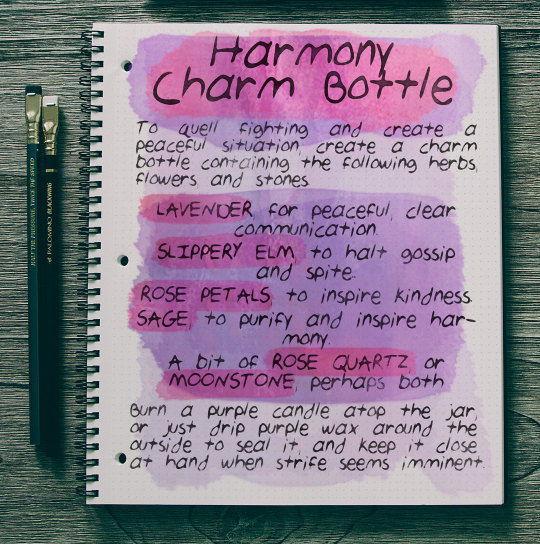 Harmony
Charm Bottle
To quell fighting and create a
peaceful situation, create a charm
bottle containing the following herbs,
flowers and stones.
LAVENDER, for peaceful, clear
communication.
SLIPPERY ELM, to halt gossip
and spite.
ROSE PETALS, to inspire kindness.
SAGE, to purify and inspire har-
mony.
A bit of ROSE QUARTZ, or
MOONSTONE, perhaps both.
Burn a purple candle atop the jar,
or just drip purple wax around the
outside to seal it, and keep it close
at hand when strife seems imminent.
HALF THE PRESSURE, TWICE THE SPEED
PALOMINO BLACKWING